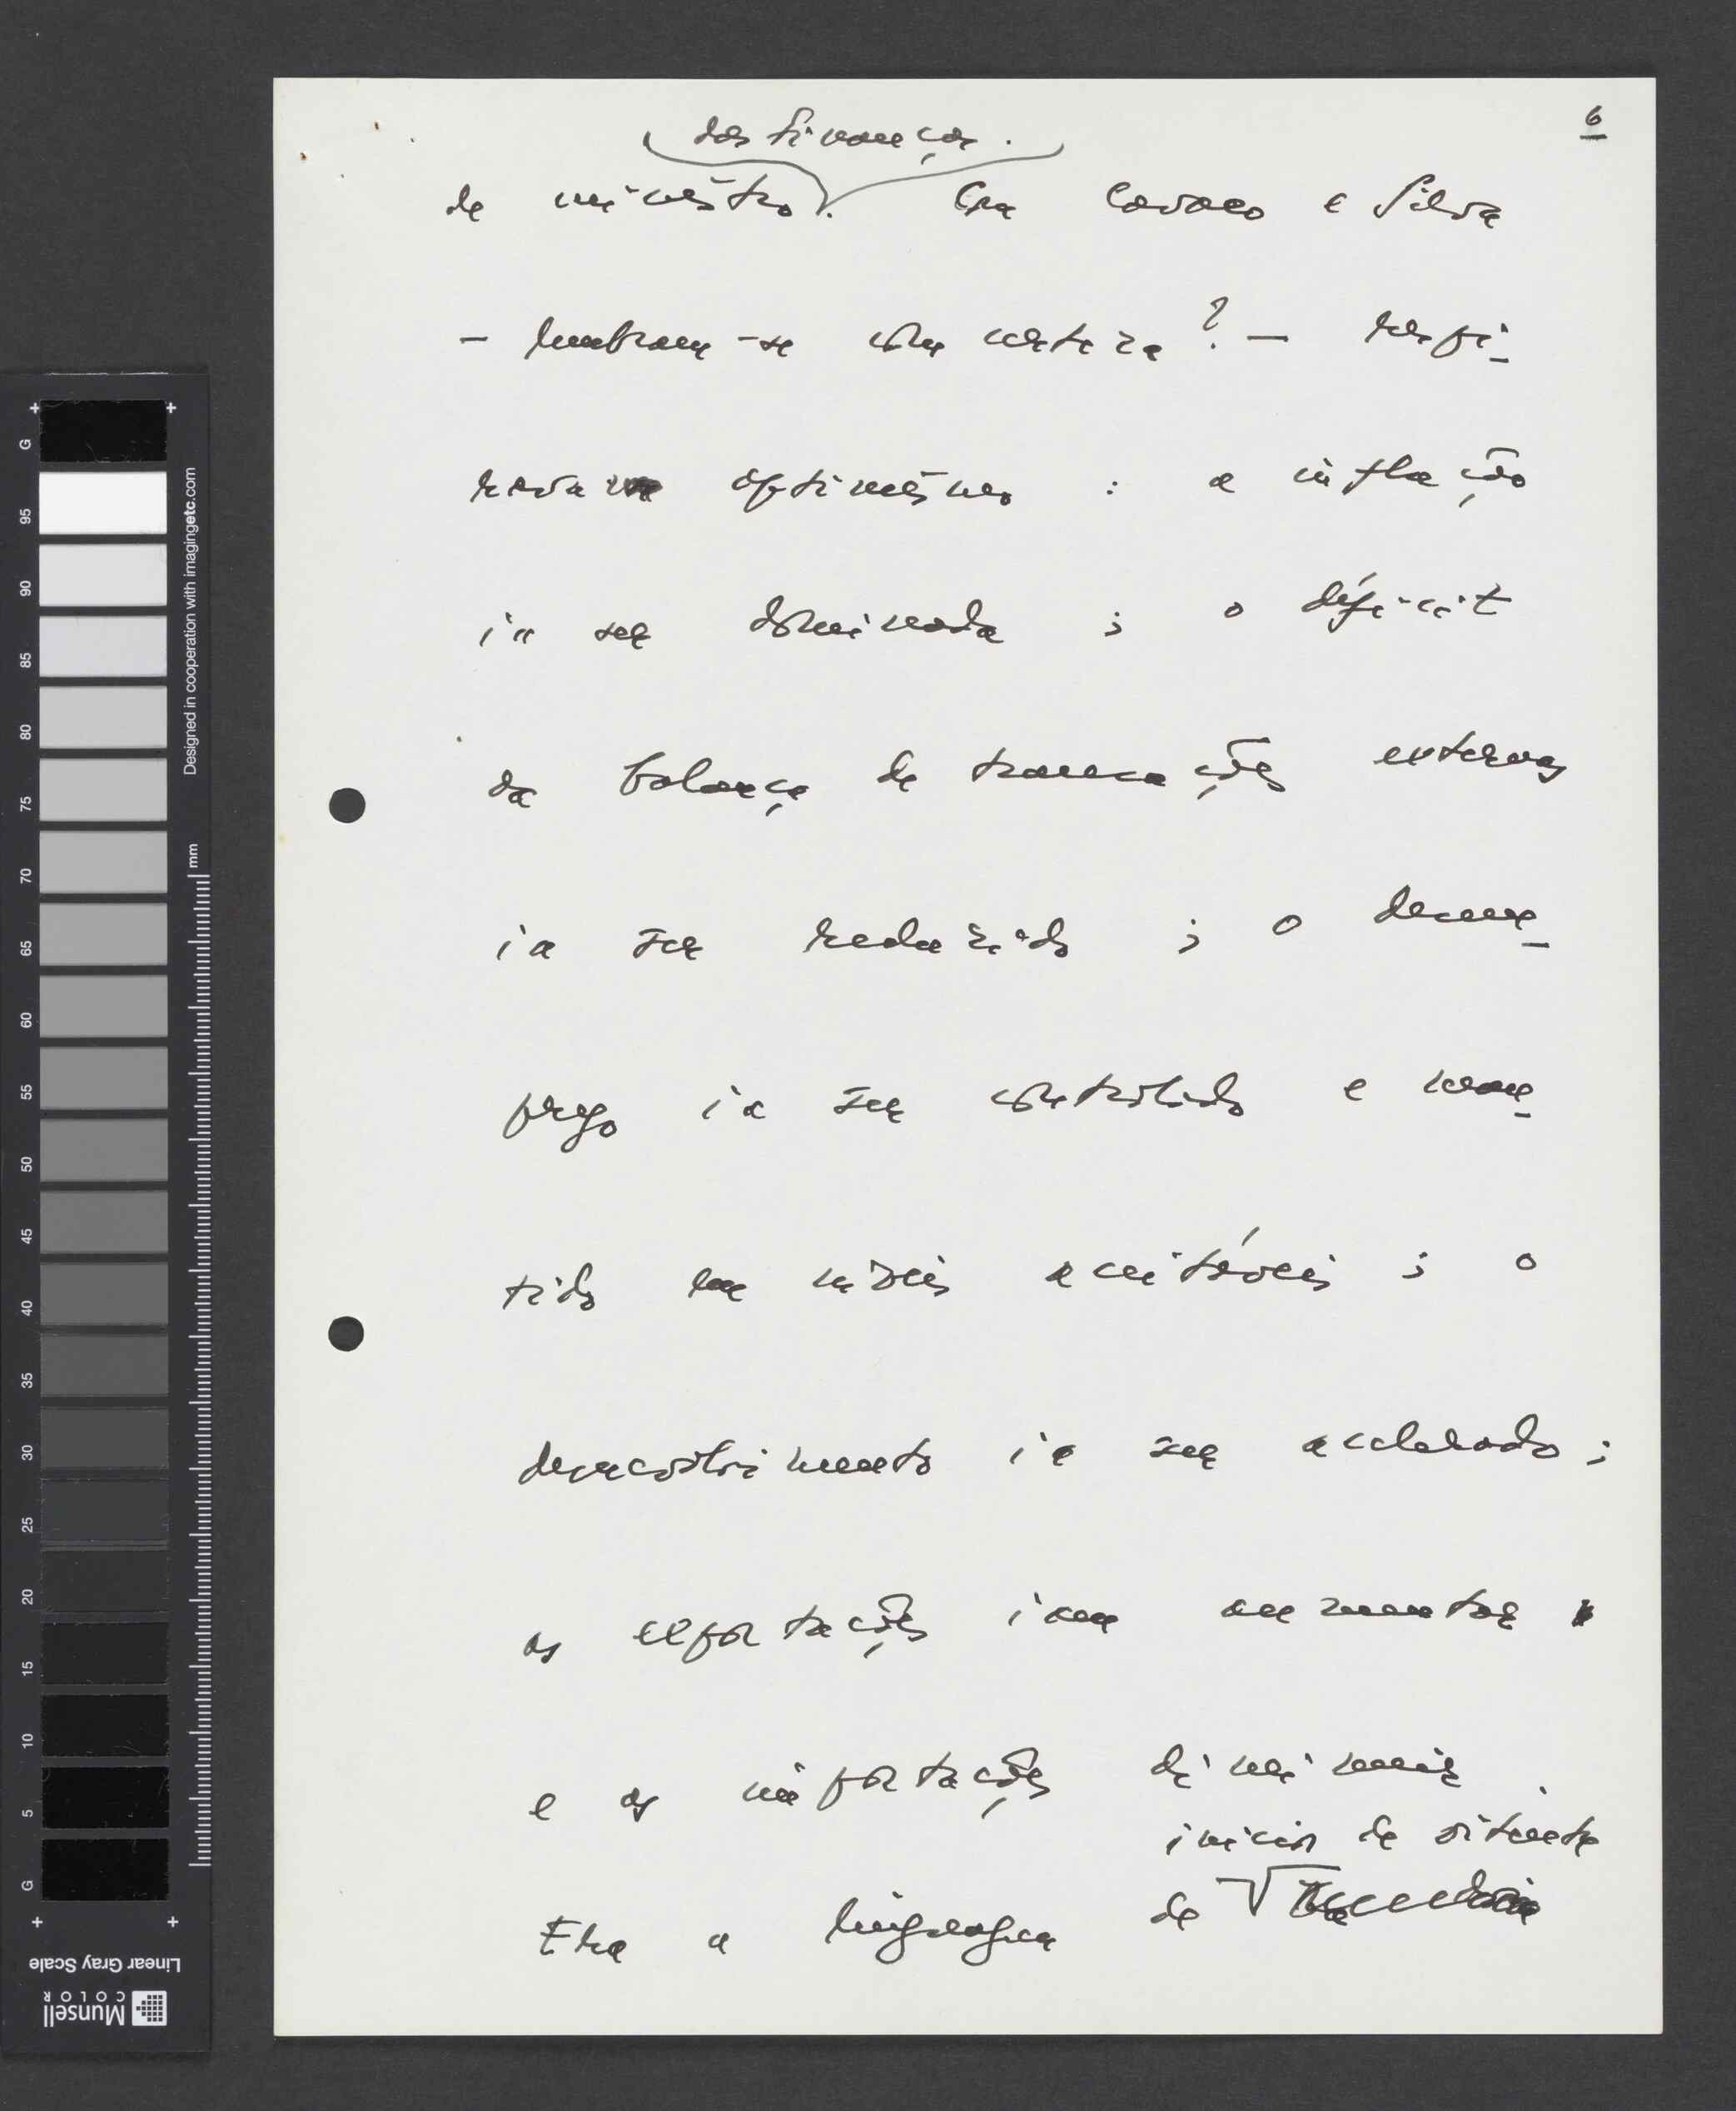 6
das finanças.
de ministro. Era Cavaco e Silva
- lembram-se com certeza? - respi-
rava optimismo : a inflação
ia ser dominada ; o déficit
da balança de transacções externas
ia ser reduzido ; o desem-
prego ia ser controlado e man-
tido em níveis aceitáveis ; o
desenvolvimento ia ser acelerado ;
as exportações iam aumentar
e as importações diminuir.
início de oitenta
Era a linguagem de
G 95 90 85 80 75 70 65 60 55 50 45 40 35 30 25 20 15 10 5 G
Designed in cooperation with imagingetc.com
mm
Linear Gray Scale
Munsell
COLOR